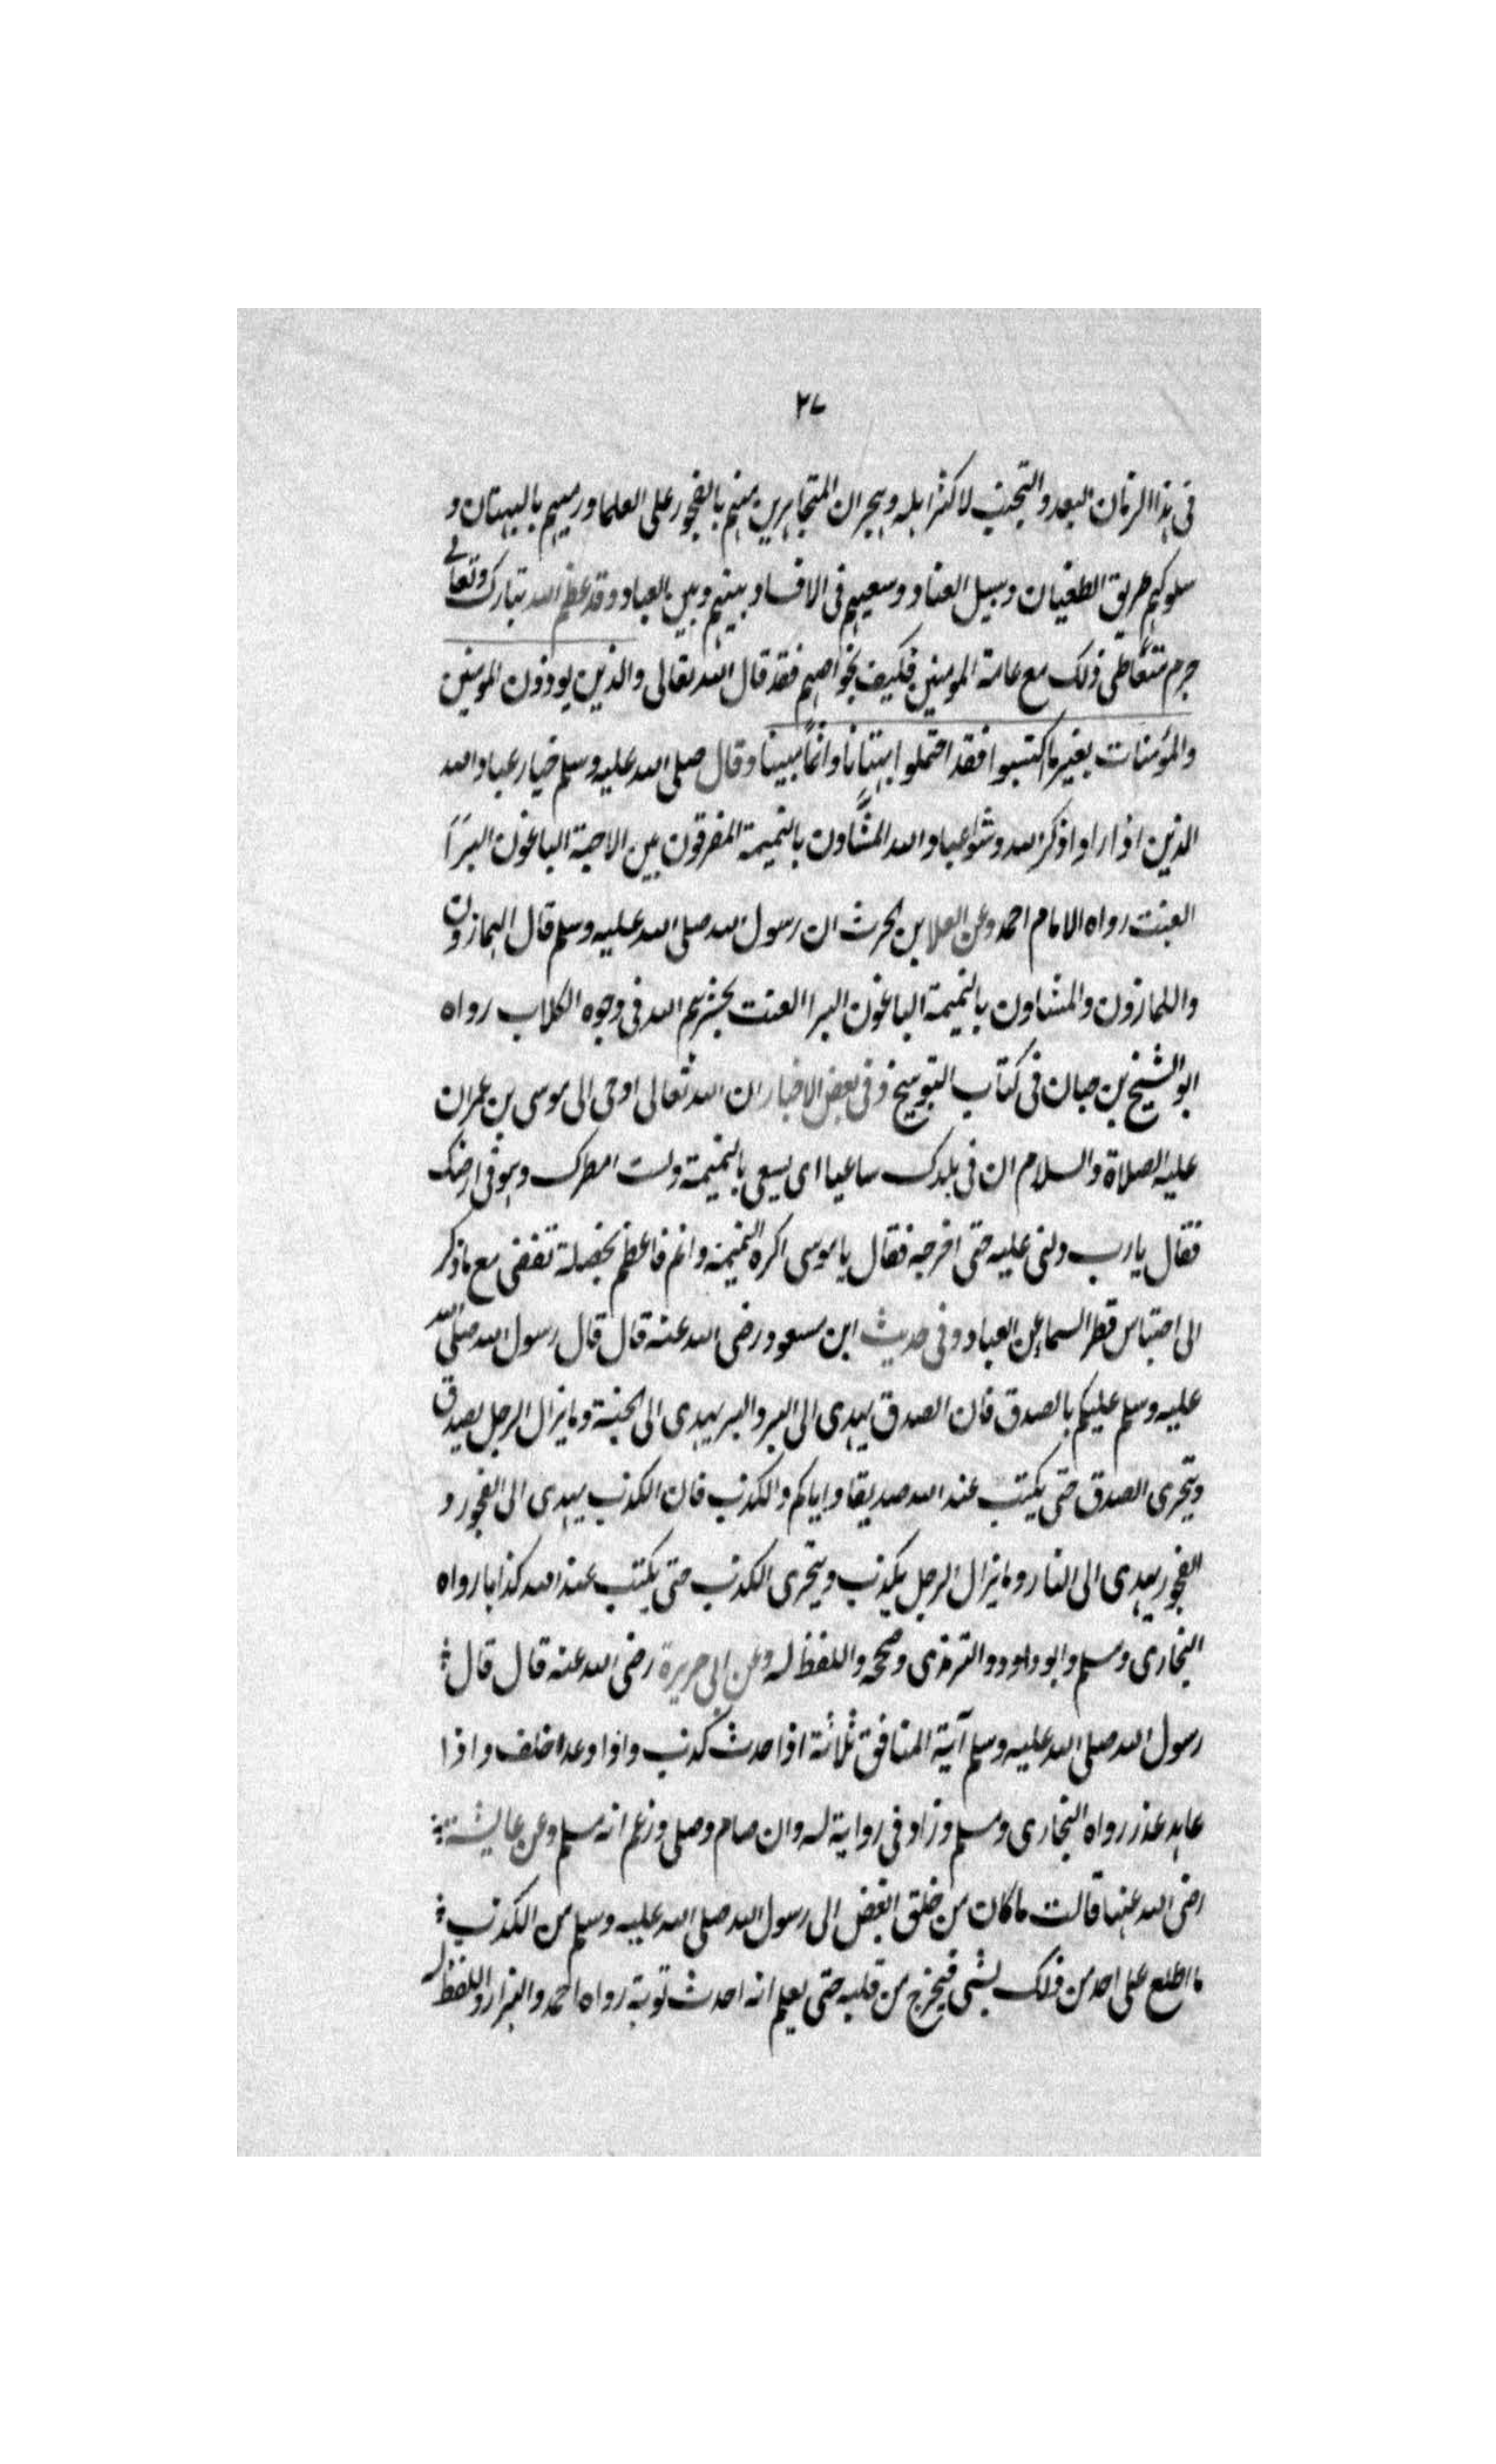 ٢٧
فى هذا الزمان البعد والتجنب لاكثر اهله وهجران المتجاهرين منهم بالفجور على العلما ورميهم بالبهتان و
سلوكهم طريق الطغيان وسبيل العناد وسعيهم فى الافساد بينهم وبين العباد وقد عظم الله تبارك وتعالى
جرم متعاطى ذلك مع عامة المومنين فكيف بخواصهم فقد قال الله تعالى والذين يوذون المومنين
والمؤمنات بغير ما اكتسبوا فقد احتملوا بهتانا واثمًا مبينا وقال صلى الله عليه وسلم خيار عباد الله
الذين اذا راوا ذكر الله وشرار عباد الله المشَّاون بالنميمة المفرقون بين الاحبة الباغون البرَآ
العنت رواه الامام احمد وعن العلا بن الحرث ان رسول الله صلى الله عليه وسلم قال الهمازون
واللمازون والمشاون بالنميمة الباغون البرا العنت يحشرهم الله فى وجوه الكلاب رواه
ابو الشيخ بن حبان فى كتاب التوبيخ وفى بعض الاخبار ان الله تعالى اوحى الى موسى بن عمران
عليه الصلاة والسلام ان فى بلدك ساعيا اى يسعى بالنميمة ولست امطرك وهو فى ارضك
فقال يارب دلنى عليه حتى اخرجه فقال يا موسى اكره النميمة وانم فاعظم بخصلة تفضى مع ما ذكر
الى احتباس قطر السماء عن العباد وفى حديث ابن مسعود رضى الله عنه قال قال رسول الله صلى الله
عليه وسلم عليكم بالصدق فان الصدق يهدى الى البر والبر يهدى الى الجنة وما يزال الرجل يصدق
ويتحرى الصدق حتى يكتب عند الله صديقا واياكم والكذب فان الكذب يهدى الى الفجور و
الفجور يهدى الى النار وما يزال الرجل يكذب ويتحرى الكذب حتى يكتب عند الله كذابا رواه
البخارى ومسلم وابو داود والترمذى وصححه واللفظ له وعن ابى هريرة رضى الله عنه قال قال
رسول الله صلى الله عليه وسلم آية المنافق ثلاثة اذا حدث كذب واذا وعد اخلف واذا
عاهد غدر رواه البخارى ومسلم وزاد فى رواية له وان صام وصلى وزعم انه مسلم وعن عايشة
رضى الله عنها قالت ما كان من خلق ابغض الى رسول الله صلى الله عليه وسلم من الكذب
ما اطلع على احد من ذلك بشى فيخرج من قلبه حتى يعلم انه احدث توبة رواه احمد والبزار واللفظ له